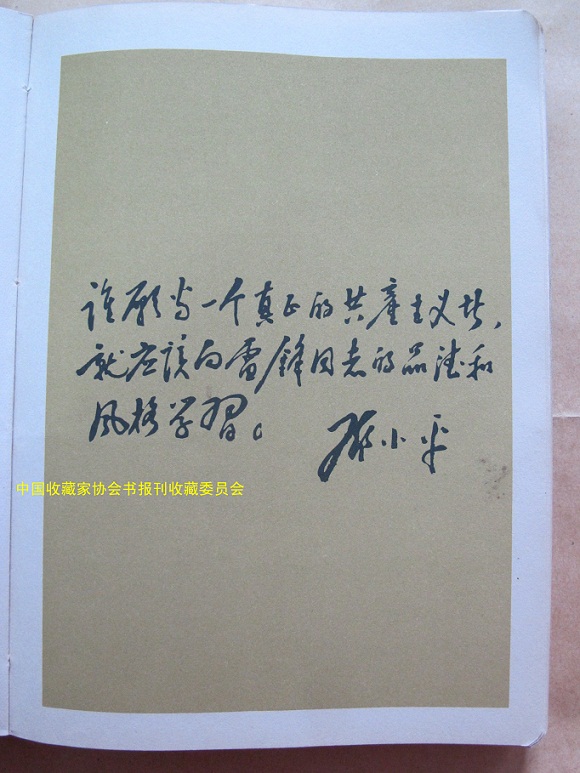 谁愿当一个真正的共产主义者，
就应该向雷锋同志的品德和
风格学习。
邓小平
中国收藏家协会书报刊收藏委员会